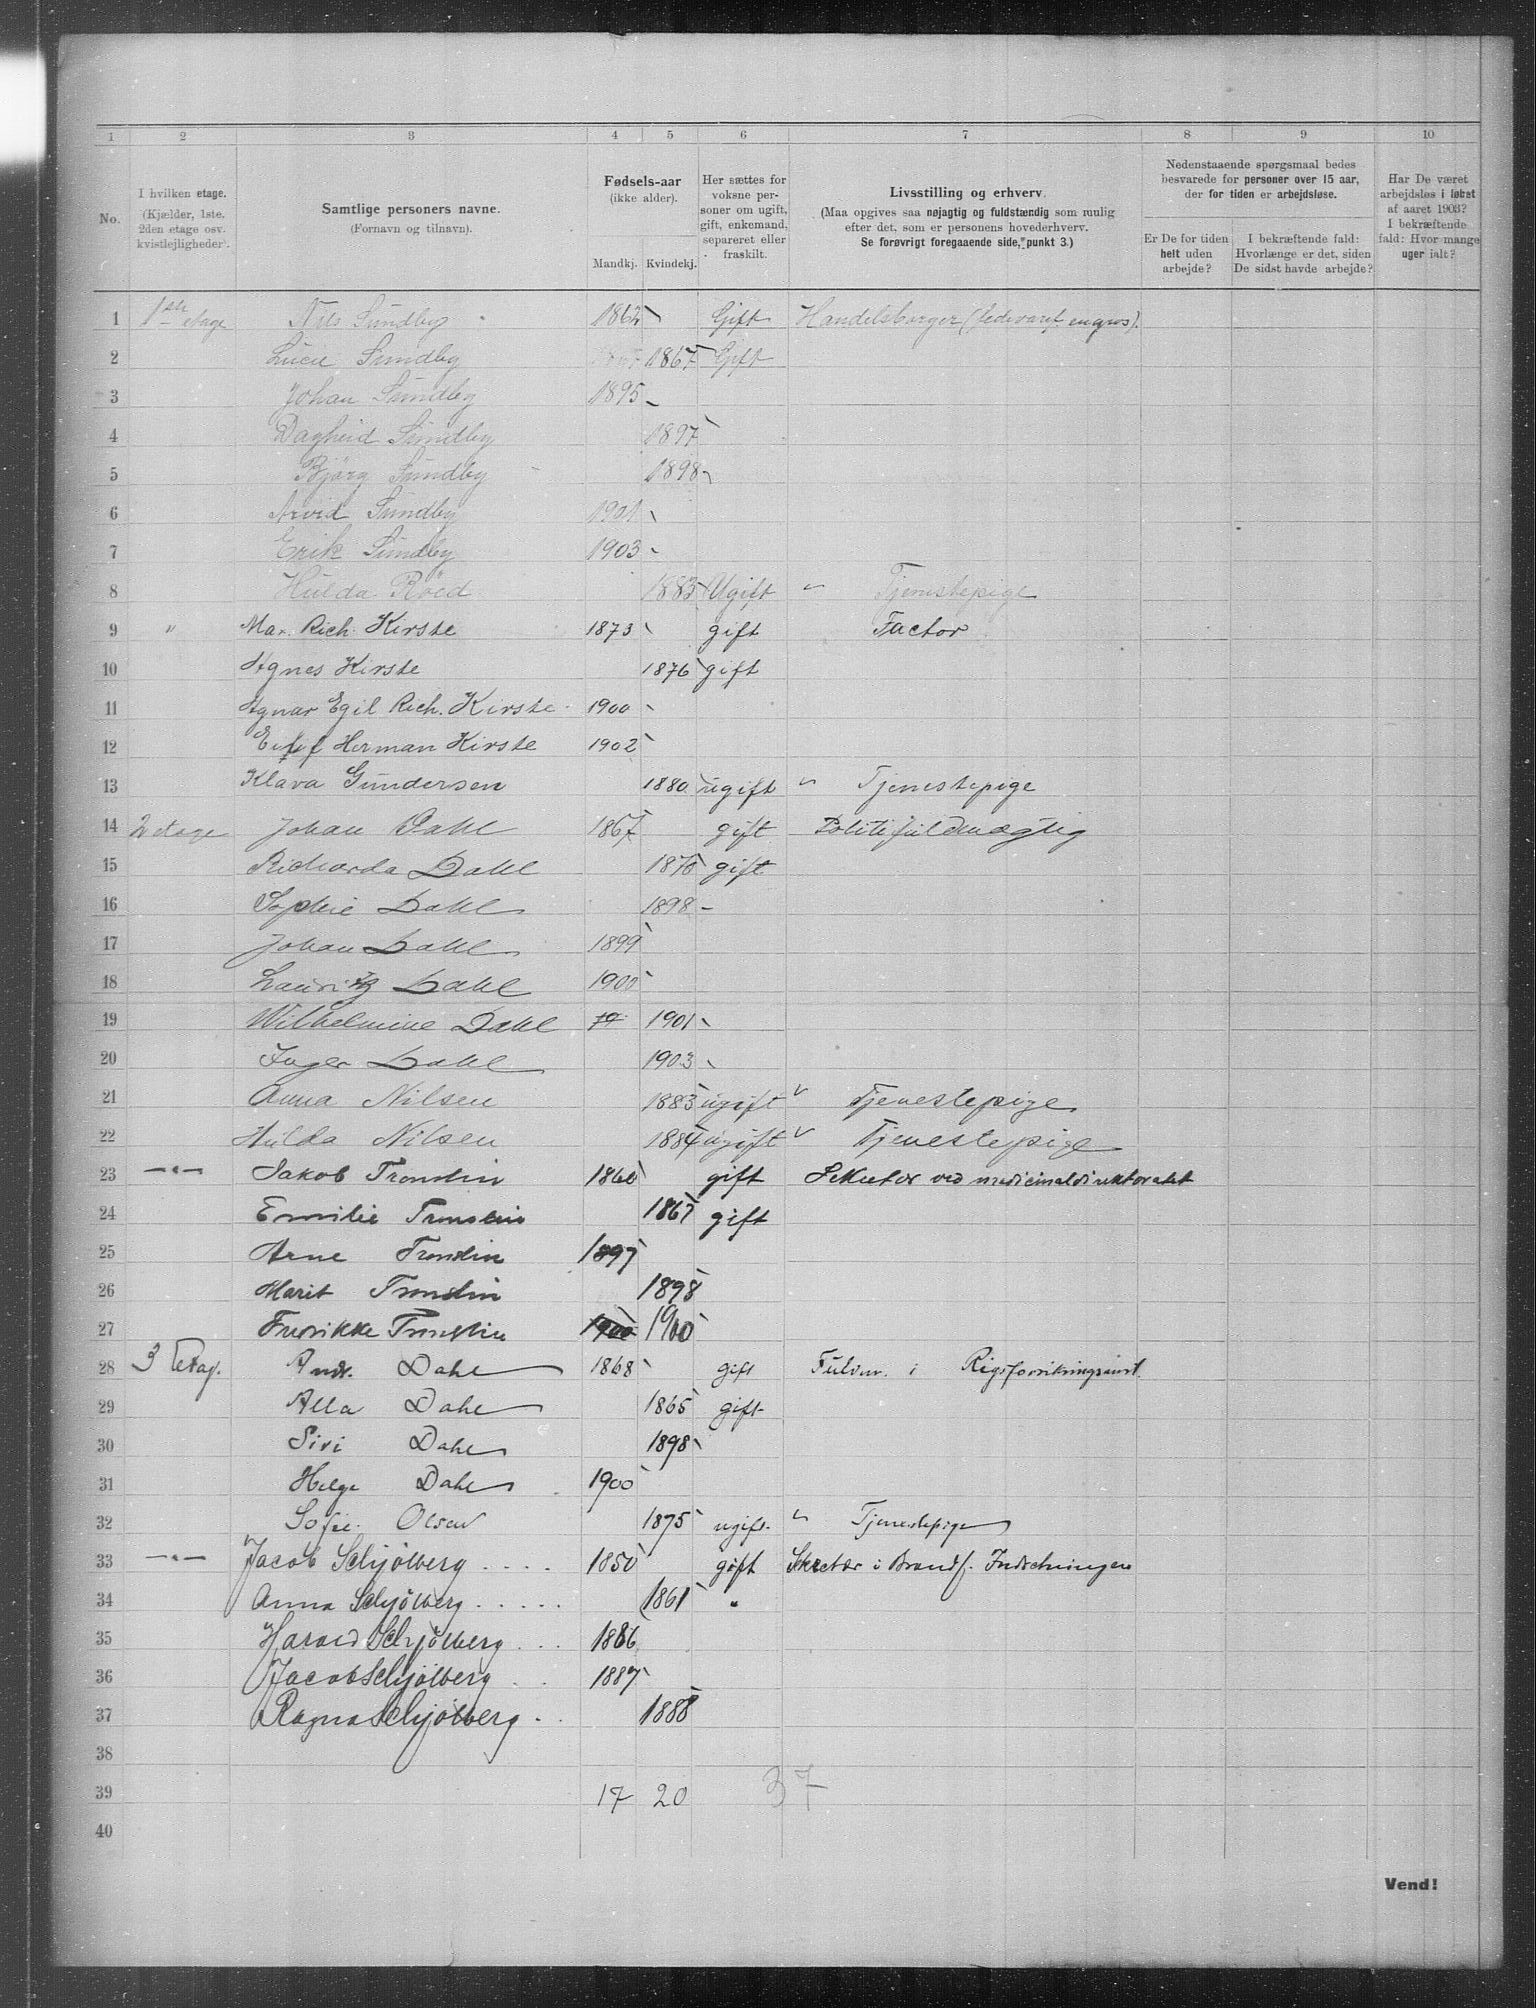 1 2 3 4 5 6 7 8 9 10
No.
I hvilken etage.
(Kjælder, 1ste.
2den etage osv.
kvistlejligheder).
Samtlige personers navne.
(Fornavn og tilnavn).
Fødsels-aar
(ikke alder).
Mandkj. Kvindekj.
Her sættes for
voksne per-
soner om ugift,
gift, enkemand,
separeret eller
fraskilt.
Livsstilling og erhverv.
(Maa opgives saa nøjagtig og fuldstændig som mulig
efter det, som er personens hovederhverv.
Se forøvrigt foregaaende side, punkt 3.)
Nedenstaaende spørgsmaal bedes
besvarede for personer over 15 aar,
der for tiden er arbejdsløse.
Er De for tiden
helt uden
arbejde?
I bekræftende fald:
Hvorlænge er det, siden
De sidst havde arbejde?
Har De været
arbejdsløs i løbet
af aaret 1903?
I bekræftende
fald: Hvor mange
uger ialt?
1 1ste etage Nils Sundby 1862 Gift Handelsborger engros).
2 Lucie Sundby 1867 Gift
3 Johan Sundby 1895
4 Dagheid Sundby 1897
5 Bjørg Sundby 1898
6 Arvid Sundby 1901
7 Erik Sundby 1903
8 Hulda Röed 1883 Ugift Tjenestepige
9 " Max. Rich. Kirste 1873 gift Factor
10 Agnes Kirste 1876 gift
11 Agnar Egil Rich. Kirste 1900
12 Herman Kirste 1902
13 Klara Gundersen 1880 ugift Tjenestepige
14 2 etage Johan Dahl 1867 gift Politifuldmægtig
15 Richarda Dahl 1870 gift
16 Sophie Dahl 1898
17 Johan Dahl 1899
18 Lauritz Dahl 1900
19 Wilhelmine Dahl 19 1901
20 Inger Dahl 1903
21 Anna Nilsen 1883 ugift Tjenestepige
22 Hulda Nilsen 1884 ugift Tjenestepige
23 —"— Jakob Trondin 1860 gift Sekretær ved medicinaldirektoratet
24 Emilie Trondin 1867 gift
25 Arne Trondin 1897
26 Marit Trondin 1898
27 Fredrikke Trondin 1900 1900
28 3 Etag. Andr. Dahl 1868 gift Fuldm. i Rigsforsikringsanst.
29 Alla Dahl 1865 gift
30 Siri Dahl 1898
31 Helge Dahl 1900
32 Sofie Olsen 1875 ugift Tjenestepige
33 —"— Jacob Schjölberg . . . . 1850 gift Sekretær i Brandf. Indretningen
34 Anna Schjölberg . . . . . 1861 "
35 Harald Schjölberg . . . 1886
36 Jacob Schjölberg . . 1887
37 Ragna Schjölberg . . 1888
38
39 17 20 37
40
Vend!